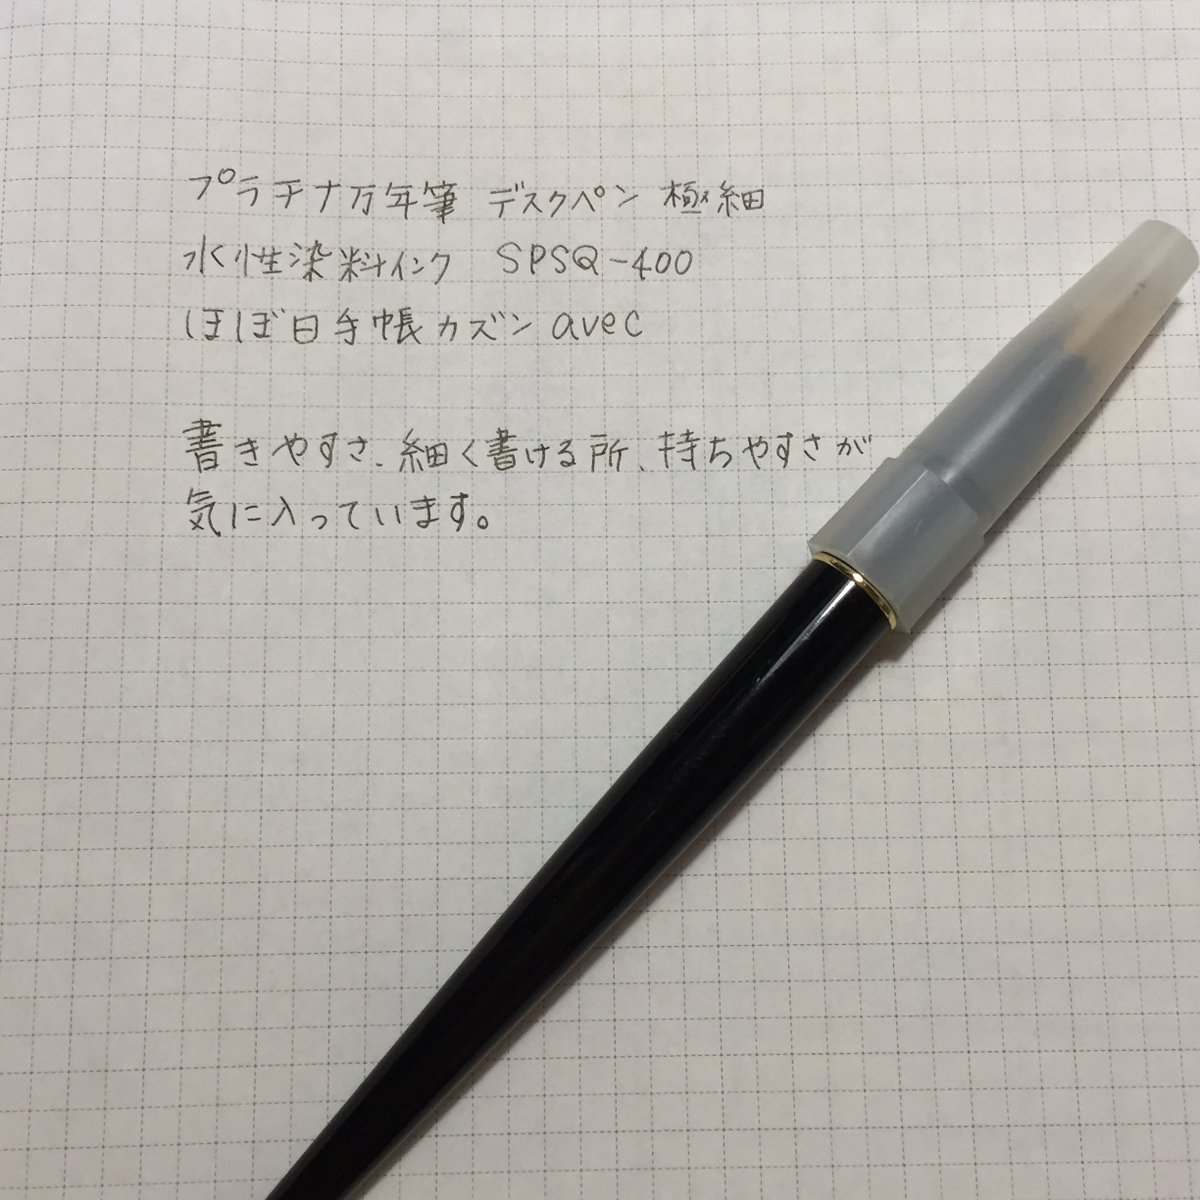 プラチナ万年筆 デスクペン 極細
水性染料インク SPSQ-400
ほぼ日手帳カズン avec
書きやすさ、細く書ける所、持ちやすさが
気に入っています。